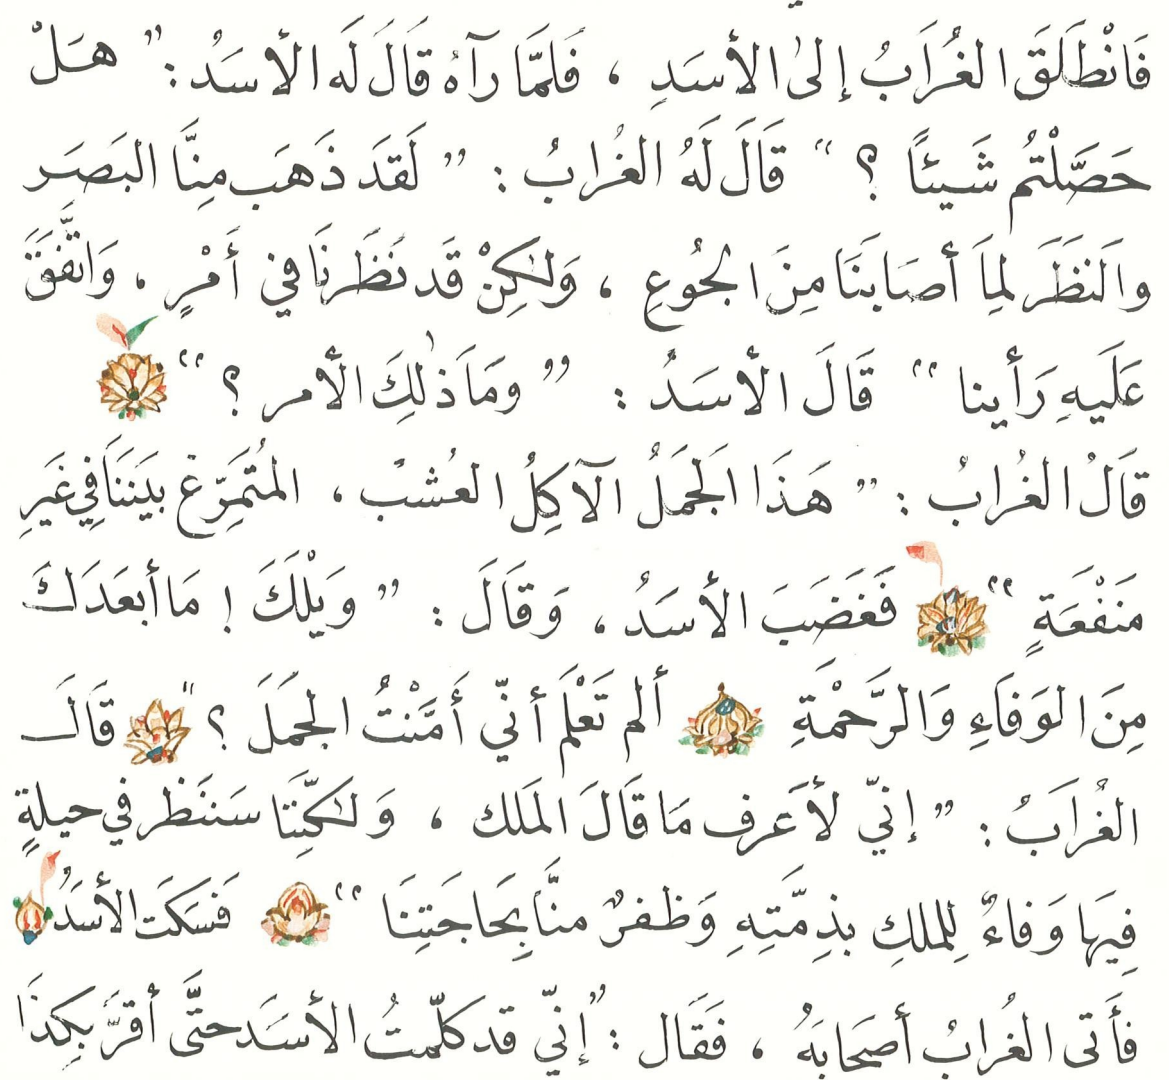 فَانْطَلَقَ الغُرَابُ إِلىٰ الأَسَدِ ، فَلَمَّا رَآهُ قَالَ لَه الأَسَدُ : ” هَلْ
حَصَّلْتُم شَيئاً ؟ “ قَالَ لَهُ الغُرابُ : ” لَقَد ذَهَب مِنَّا البَصَر
والَنظَر لِمَا أصَابَنَا مِنَ الجُوعِ ، وَلٰكِنْ قَد نَظَرنَا في أَمْرٍ ، وَاتَّفَقَ
عَلَيهِ رَأينا “ قَالَ الأَسَدُ : ” ومَا ذٰلِكَ الأمر ؟ “
قَالُ الغُرابُ : ” هَذَا الجَمَلُ الآكِلُ العُشبْ ، المُتَمَرِّغ بَينَنَا في غَيَرِ
مَنْفَعَةٍ “ فَغَضَبَ الأَسَدُ ، وَقَالَ : ” وَيْلَكَ ! مَا أبعَدَكَ
مِنَ الوَفَاءِ وَالرَّحْمَةِ ألم تَعْلَم أنّي أَمَّنتُ الجَمَلَ ؟ “ قَالَ
الغُرَابُ : ” إنّي لأَعَرف مَا قَالَ المَلك ، وَلٰكِنَّنا سَنَنظر في حيلةٍ
فِيَها وَفاءٌ لِلملكِ بذِمَّتِهِ وَظفرٌ منَّا بِحَاجَتِنَا “ فَسَكَتَ الأَسَدُ
فأَتى الغُرابُ أصحَابَهُ ، فَقَال : ” إنّي قد كلّمتُ الأسَدَ حتَّى أقرَّ بِكذَا